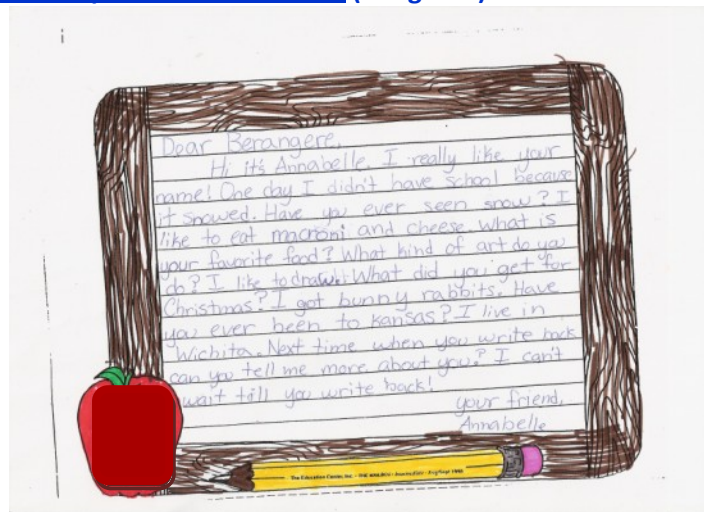 Dear Berangere,
Hi it's Annabelle. I really like your
name! One day I didn't have school because
it snowed. Have you ever seen snow? I
like to eat macroni and cheese. What is
your favorite food? What kind of art do you
do? I like to draw. What did you get for
Christmas? I got bunny rabbits. Have
you ever been to Kansas? I live in
Wichita. Next time when you write back
can you tell me more about you? I can't
wait till you write back!
your friend,
Annabelle
The Education Center, Inc. • THE MAILBOX •